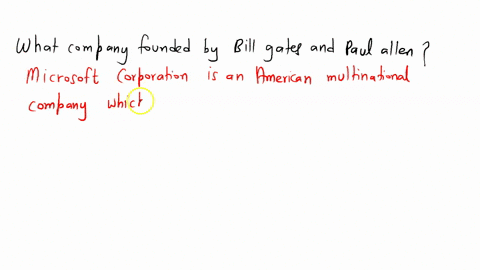 What company founded by Bill gates and Paul allen ?
Microsoft Corporation is an American multinational
company which